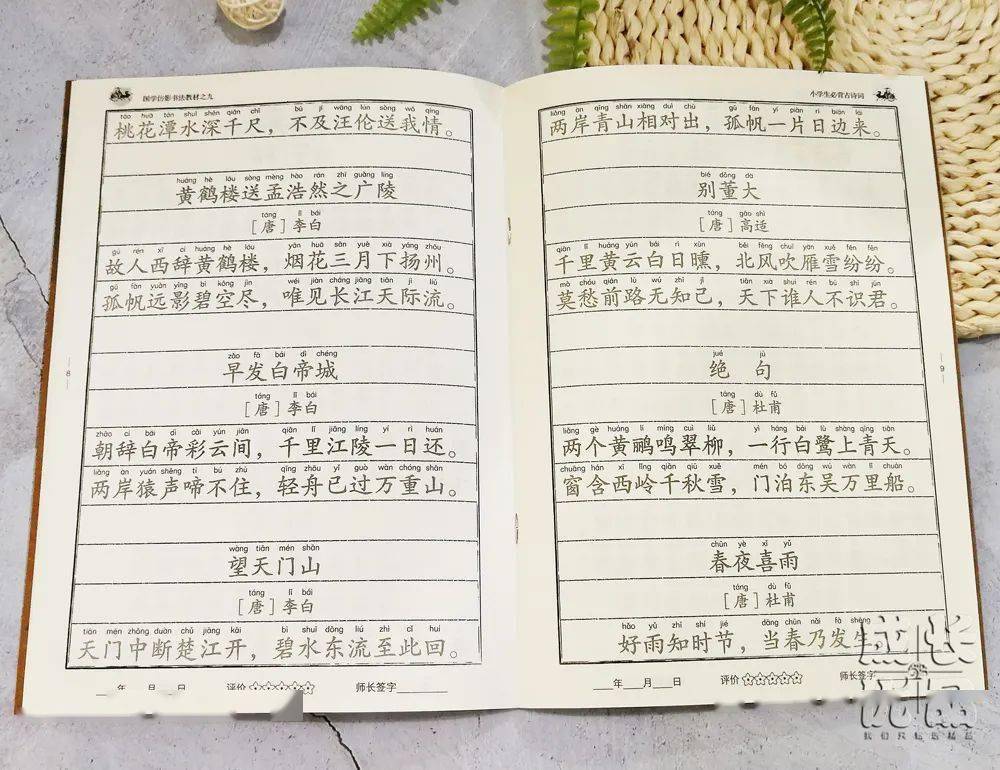 国学仿影书法教材之九
táo huā tán shuǐ shēn qiān chǐ bù jí wāng lún sòng wǒ qíng
桃花潭水深千尺，不及汪伦送我情。
huáng hè lóu sòng mèng hào rán zhī guǎng líng
黄鹤楼送孟浩然之广陵
táng lǐ bái
［唐］李白
gù rén xī cí huáng hè lóu yān huā sān yuè xià yáng zhōu
故人西辞黄鹤楼，烟花三月下扬州。
gū fān yuǎn yǐng bì kōng jìn wéi jiàn cháng jiāng tiān jì liú
孤帆远影碧空尽，唯见长江天际流。
zǎo fā bái dì chéng
早发白帝城
táng lǐ bái
［唐］李白
zhāo cí bái dì cǎi yún jiān qiān lǐ jiāng líng yí rì huán
朝辞白帝彩云间，千里江陵一日还。
liǎng àn yuán shēng tí bú zhù qīng zhōu yǐ guò wàn chóng shān
两岸猿声啼不住，轻舟已过万重山。
wàng tiān mén shān
望天门山
táng lǐ bái
［唐］李白
tiān mén zhōng duàn chǔ jiāng kāi bì shuǐ dōng liú zhì cǐ huí
天门中断楚江开，碧水东流至此回。
年 月 日 评价☆☆☆☆☆ 师长签字
8
小学生必背古诗词
liǎng àn qīng shān xiāng duì chū gū fān yí piàn rì biān lái
两岸青山相对出，孤帆一片日边来。
bié dǒng dà
别董大
táng gāo shì
［唐］高适
qiān lǐ huáng yún bái rì xūn běi fēng chuī yàn xuě fēn fēn
千里黄云白日曛，北风吹雁雪纷纷。
mò chóu qián lù wú zhī jǐ tiān xià shuí rén bù shí jūn
莫愁前路无知己，天下谁人不识君。
jué jù
绝 句
táng dù fǔ
［唐］杜甫
liǎng gè huáng lí míng cuì liǔ yì háng bái lù shàng qīng tiān
两个黄鹂鸣翠柳，一行白鹭上青天。
chuāng hán xī lǐng qiān qiū xuě mén bó dōng wú wàn lǐ chuán
窗含西岭千秋雪，门泊东吴万里船。
chūn yè xǐ yǔ
春夜喜雨
táng dù fǔ
［唐］杜甫
hǎo yǔ zhī shí jié dāng chūn nǎi fā shēng
好雨知时节，当春乃发生
年 月 日 评价☆☆☆☆☆ 师长签字
9